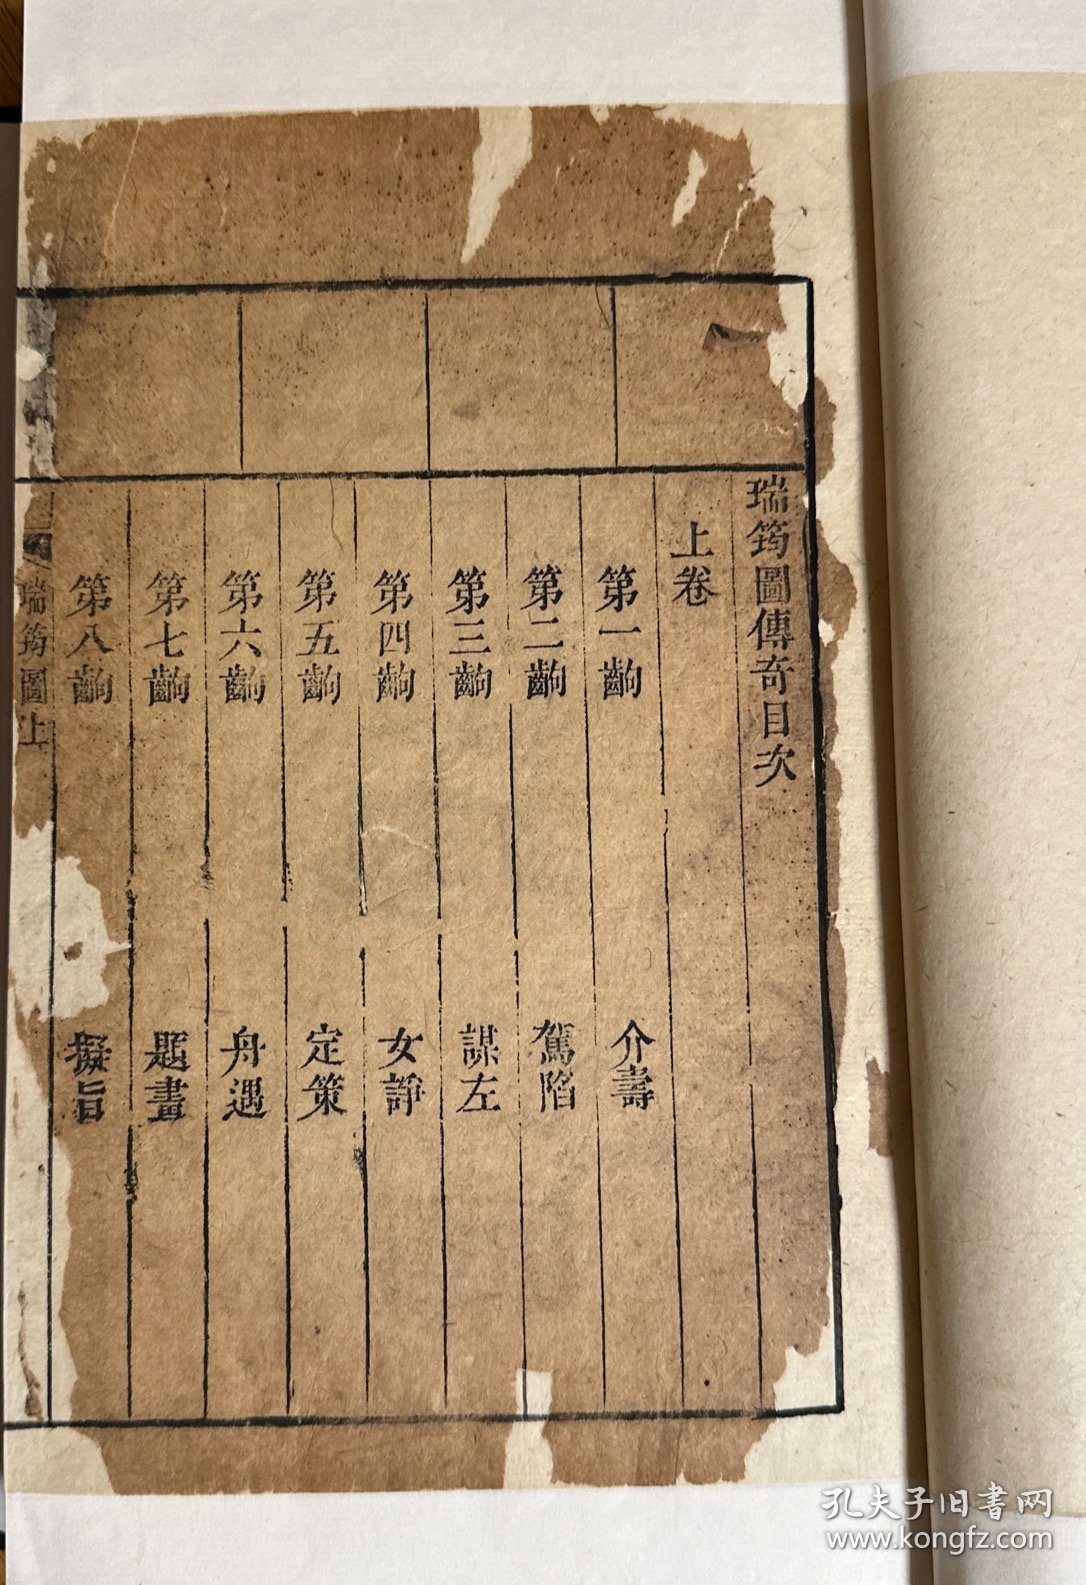 瑞筠圖傳奇目次
上卷
第一齣 介壽
第二齣 駕陷
第三齣 謀左
第四齣 女諍
第五齣 定策
第六齣 舟遇
第七齣 題畫
第八齣 擬旨
瑞筠圖上
孔夫子旧书网
www.kongfz.com